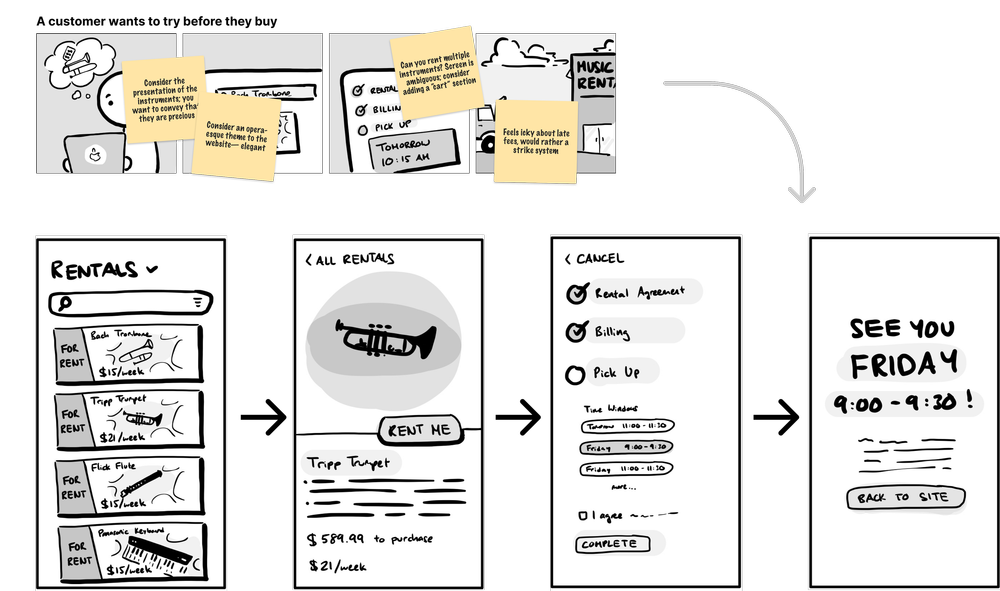 A customer wants to try before they buy
Consider the
presentation of the
instruments; you
want to convey that
they are precious
Back Trombone
Consider an opera-
esque theme to the
website— elegant
RENTAL
BILLIN
PICK UP
TOMORROW
10:15 AM
Can you rent multiple
instruments? Screen is
ambiguous; consider
adding a "cart" section
MUSIC
RENTA
Feels icky about late
fees, would rather a
strike system
RENTALS
FOR
RENT
Bach Trombone
$15/week
FOR
RENT
Tripp Trumpet
$21/week
FOR
RENT
Flick Flute
$15/week
FOR
RENT
Panasonic Keyboard
$15/week
< ALL RENTALS
RENT ME
Tripp Trumpet
$589.99 to purchase
$21/week
< CANCEL
Rental Agreement
Billing
Pick Up
Time Windows
Tomorrow 11:00-11:30
Friday 9:00-9:30
Friday 11:00-11:30
more...
I agree
COMPLETE
SEE YOU
FRIDAY
9:00-9:30!
BACK TO SITE